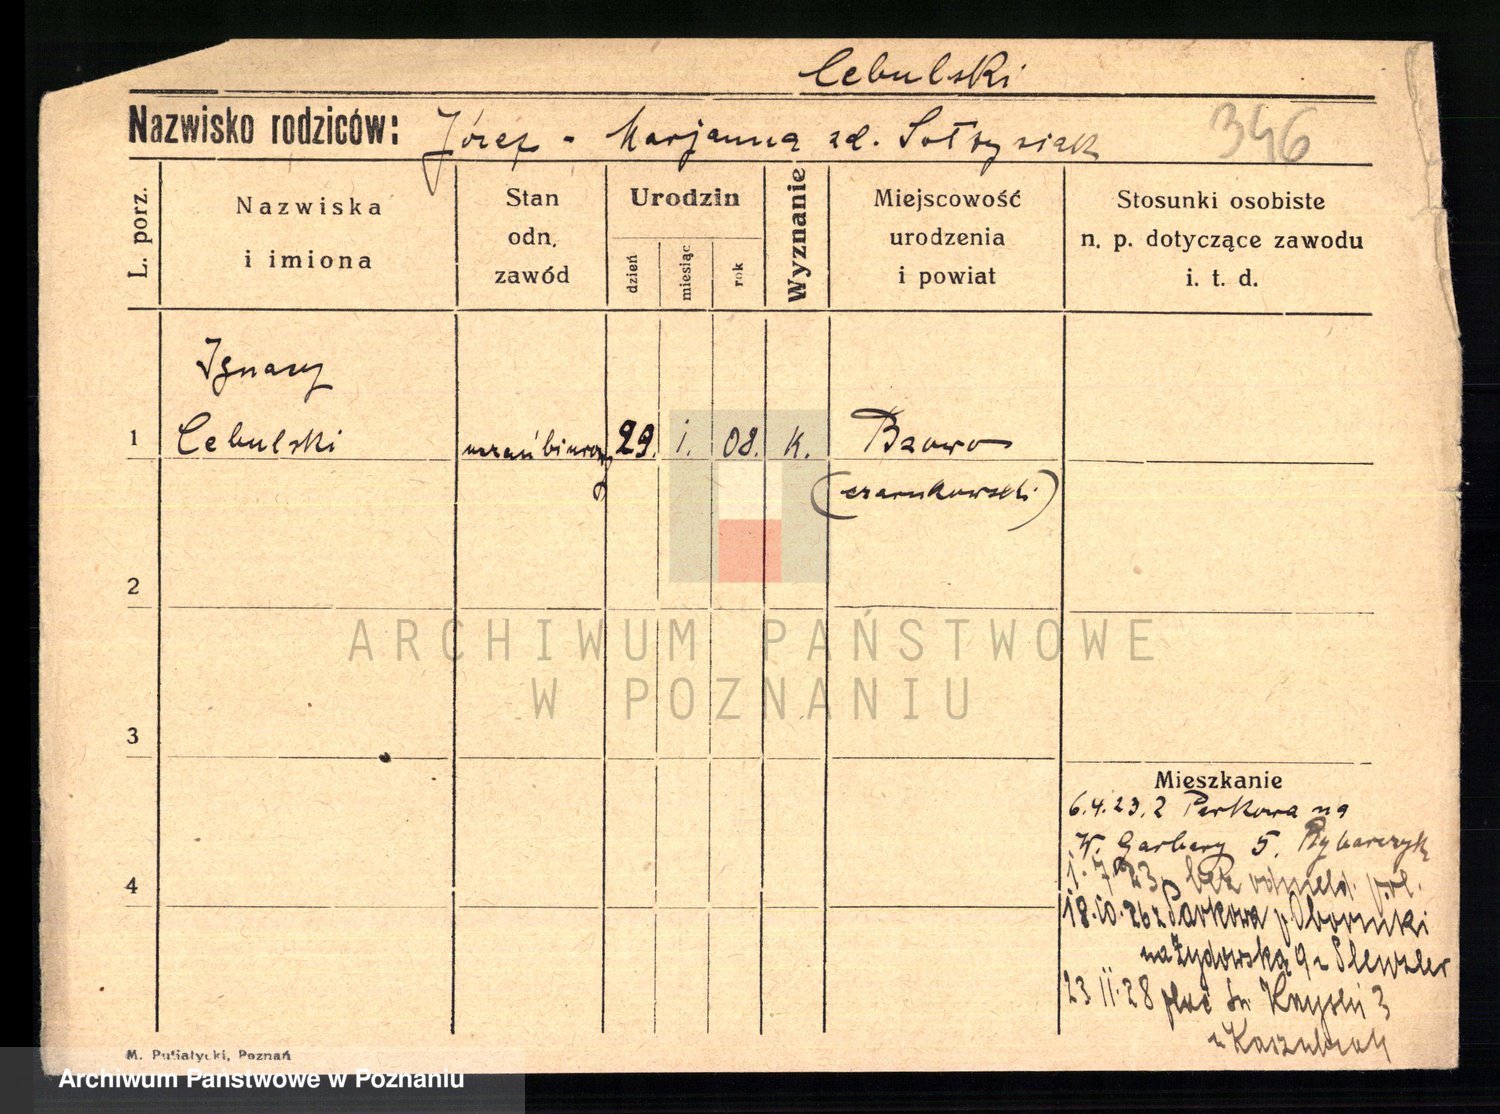 Cebulski
Nazwisko rodziców: Józef - Marjanna zd. Sołtysiak
346
L. porz.
Nazwiska
i imiona
Stan
odn.
zawód
Urodzin
dzień
miesiąc
rok
Wyznanie
Miejscowość
urodzenia
i powiat
Stosunki osobiste
n. p. dotyczące zawodu
i. t. d.
Ignacy
1 Cebulski 29. i. 08. k. Bzowo
(czarnkowski)
2
ARCHIWUM PAŃSTWOWE
W POZNANIU
3
Mieszkanie
6.4.23. z Parkowa na
W. Garbary 5. Rybarczyk
4
1.7.23. bez
18.10.26 z Parkowa p. Oborniki
na Żydowską 9
23.II.28 plac Św. Krzyski 3
M. Putiatycki, Poznań
Archiwum Państwowe w Poznaniu